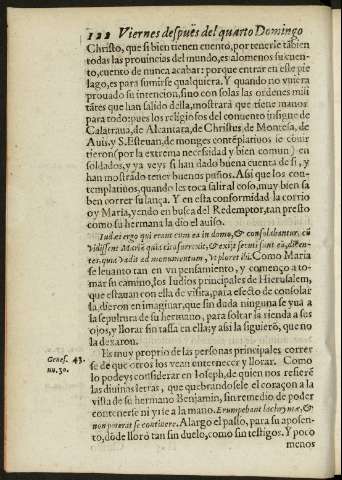 122 Viernes despues del quarto Domingo
Christo, que si bien tienen cuento, por tenerle tābien
todas las prouincias del mundo, es alomenos su cuen-
to, cuento de nunca acabar: porque entrar en este pie
lago, es para sumirse qualquiera. Y quando no vuiera
prouado su intencion, sino con solas las ordenes mili
tāres que han salido della, mostrará que tiene manos
para todo: pues los religiosos del conuento insigne de
Calatraua, de Alcantara, de Christus, de Montesa, de
Auis, y S. Esteuan, de monges contēplatiuos se conuir
tieron (por la extrema necessidad y bien comun) en
soldados, y ya veys si han dado buena cuenta de si, y
han mostrado tener buenos puños. Assi que los con-
templatiuos, quando les toca salir al coso, muy bien sa
ben correr su lança. Y en esta conformidad la corrio
oy Maria, yendo en busca del Redemptor, tan presto
como su hermana la dio el auiso.
Iudæi ergo qui erant cum ea in domo, & consolabantur eā
vidissent Mariā quia cito surrexit, & exijt secuti sunt eā, dicen-
tes: quia vadit ad monumentum, vt ploret ibi. Como Maria
se leuanto tan en vn pensamiento, y començo a to-
mar su camino, los Iudios principales de Hierusalem,
que estauan con ella de visita, para efecto de consolar
la, dieron en imaginar, que sin duda ninguna se yua a
la sepultura de su hermano, para soltar la rienda a sus
ojos, y llorar sin tassa en ella; y assi la siguierō, que no
la dexaron.
Es muy proprio de las personas principales correr
Genes. 43. se de que otros los vean enternecer y llorar. Como
nu. 30. lo podeys considerar en Ioseph, de quien nos refierē
las diuinas letras, que quebrandosele el coraçon a la
vista de su hermano Benjamin, sin remedio de poder
contenerse ni yrse a la mano. Erumpebant lachrymæ, &
non poterat se continere. Alargo el passo, para su aposen-
to, dōde lloró tan sin duelo, como sin testigos. Y poco
menos